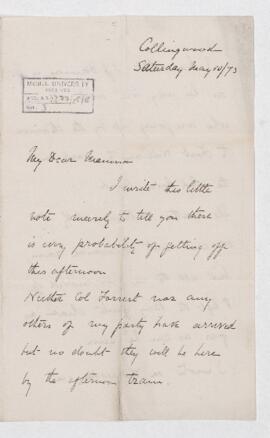 Collingwood
Saturday May 10/73
McGILL UNIVERSITY
ARCHIVES
ACC. NO.
REF.
My Dear Mamma
I write this little
note merely to tell you there
is every probability of getting off
this afternoon
Neither Col Forrest nor any
others of my party have arrived
but no doubt they will be here
by the afternoon train.